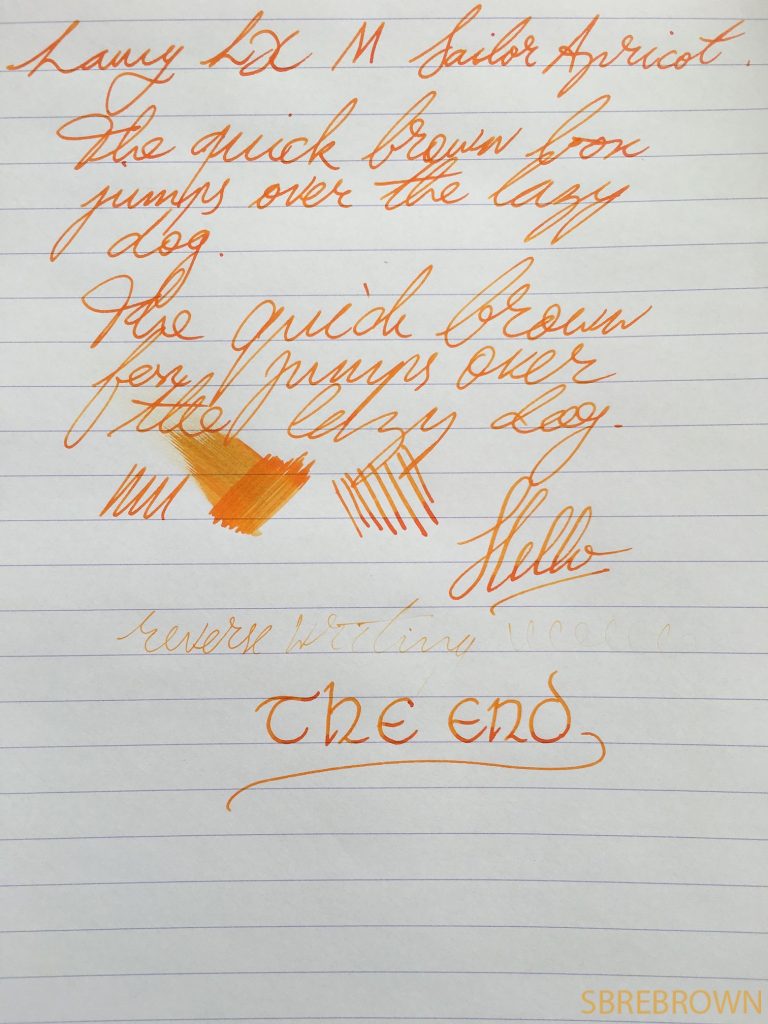 Lamy LX M Sailor Apricot.
The quick brown box
jumps over the lazy
dog.
The quick brown
fox jumps over
the lazy dog.
Hello
reverse writing
The End
SBREBROWN